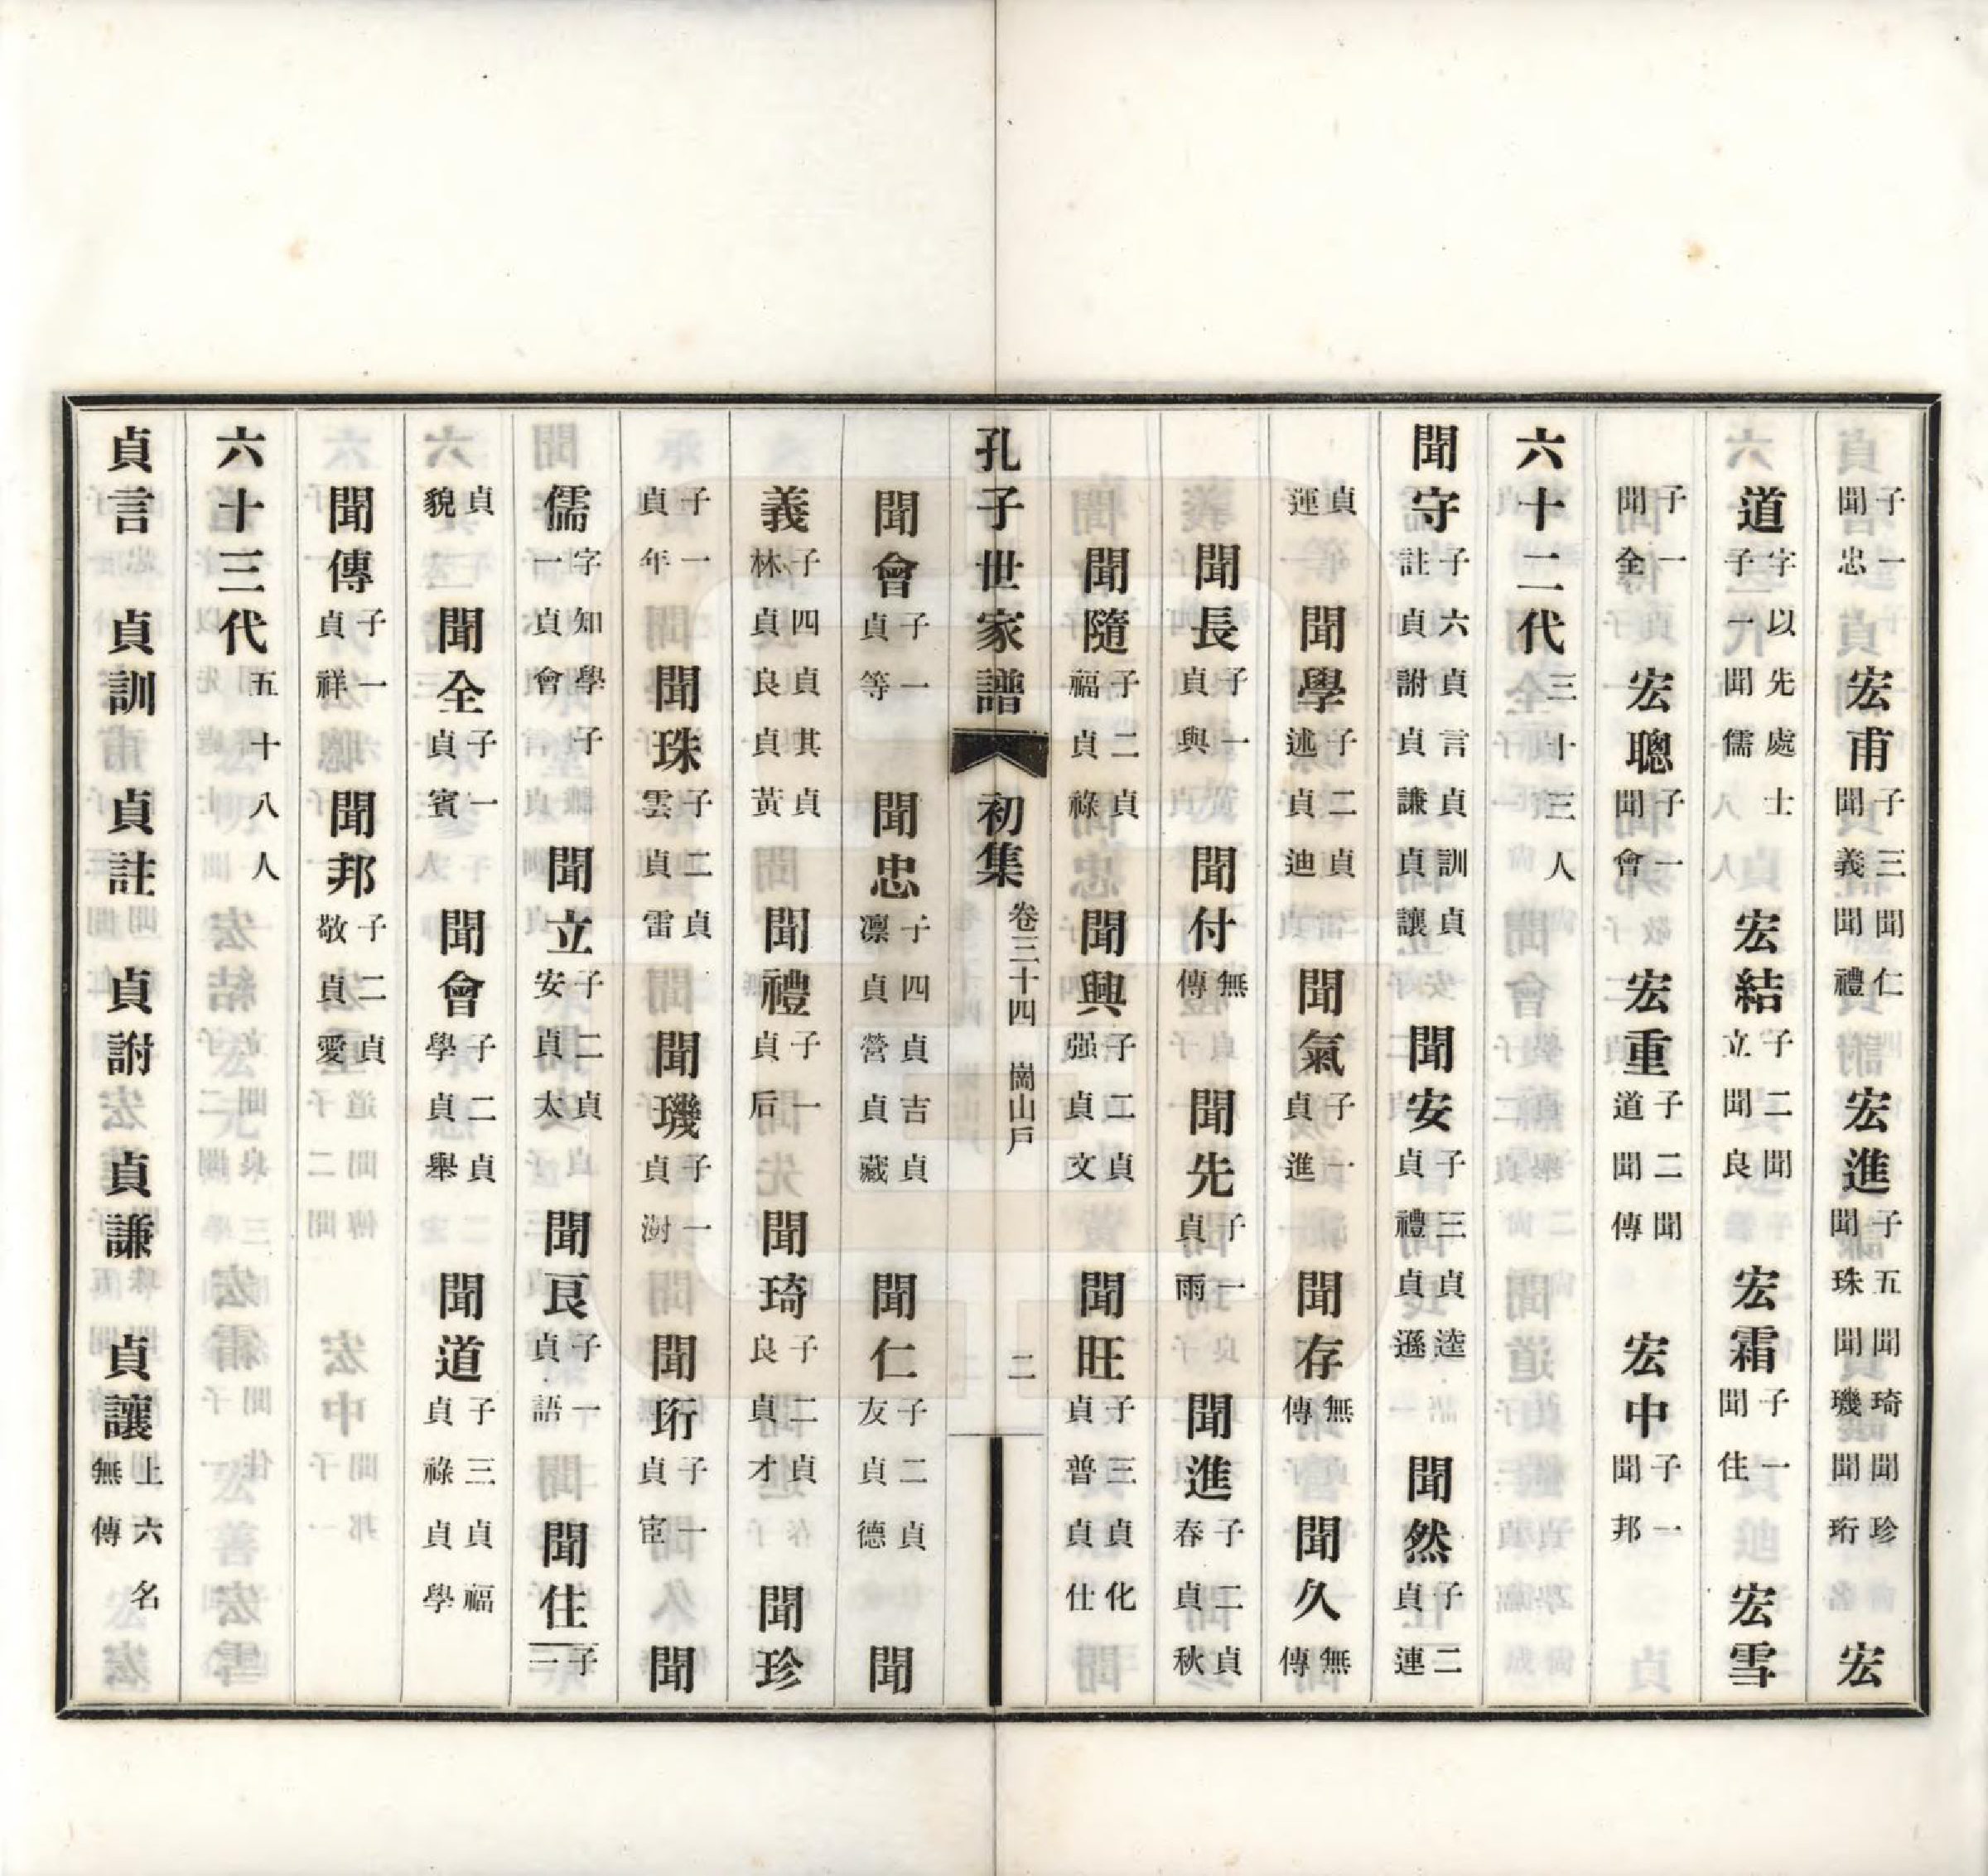 子一聞忠　宏甫子三聞仁聞義聞禮　宏進子五聞琦聞珍聞珠聞璣聞珩　宏
道字以先處士子一聞儒　宏結子二聞立聞良　宏霜子一聞住　宏雪
子一聞全　宏聰子一聞會　宏重子二聞道聞傳　宏中子一聞邦
六十二代三十三人
聞守子六貞言貞訓貞註貞詂貞謙貞讓　聞安子三貞逵貞禮貞遜　聞然子二貞連
貞運　聞學子二貞述貞迪　聞氣子一貞進　聞存無傳　聞久無傳
聞長子一貞與　聞付無傳　聞先子一貞雨　聞進子二貞春貞秋
聞隨子二貞福貞祿　聞興子二貞强貞文　聞旺子三貞化貞普貞仕
孔子世家譜　初集　卷三十四　崗山戶　二
聞會子一貞等　聞忠子四貞吉貞凛貞營貞藏　聞仁子二貞友貞德　聞
義子四貞其貞林貞良貞黃　聞禮子一貞后　聞琦子二貞良貞才　聞珍
子一貞年　聞珠子二貞雲貞雷　聞璣子一貞澍　聞珩子一貞宦　聞
儒字知學子一貞會　聞立子二貞安貞太　聞良子一貞語　聞住子一
貞貌　聞全子一貞賓　聞會子二貞學貞舉　聞道子三貞福貞祿貞學
聞傳子一貞祥　聞邦子二貞敬貞愛
六十三代五十八人
貞言　貞訓　貞註　貞詂　貞謙　貞讓上六名無傳